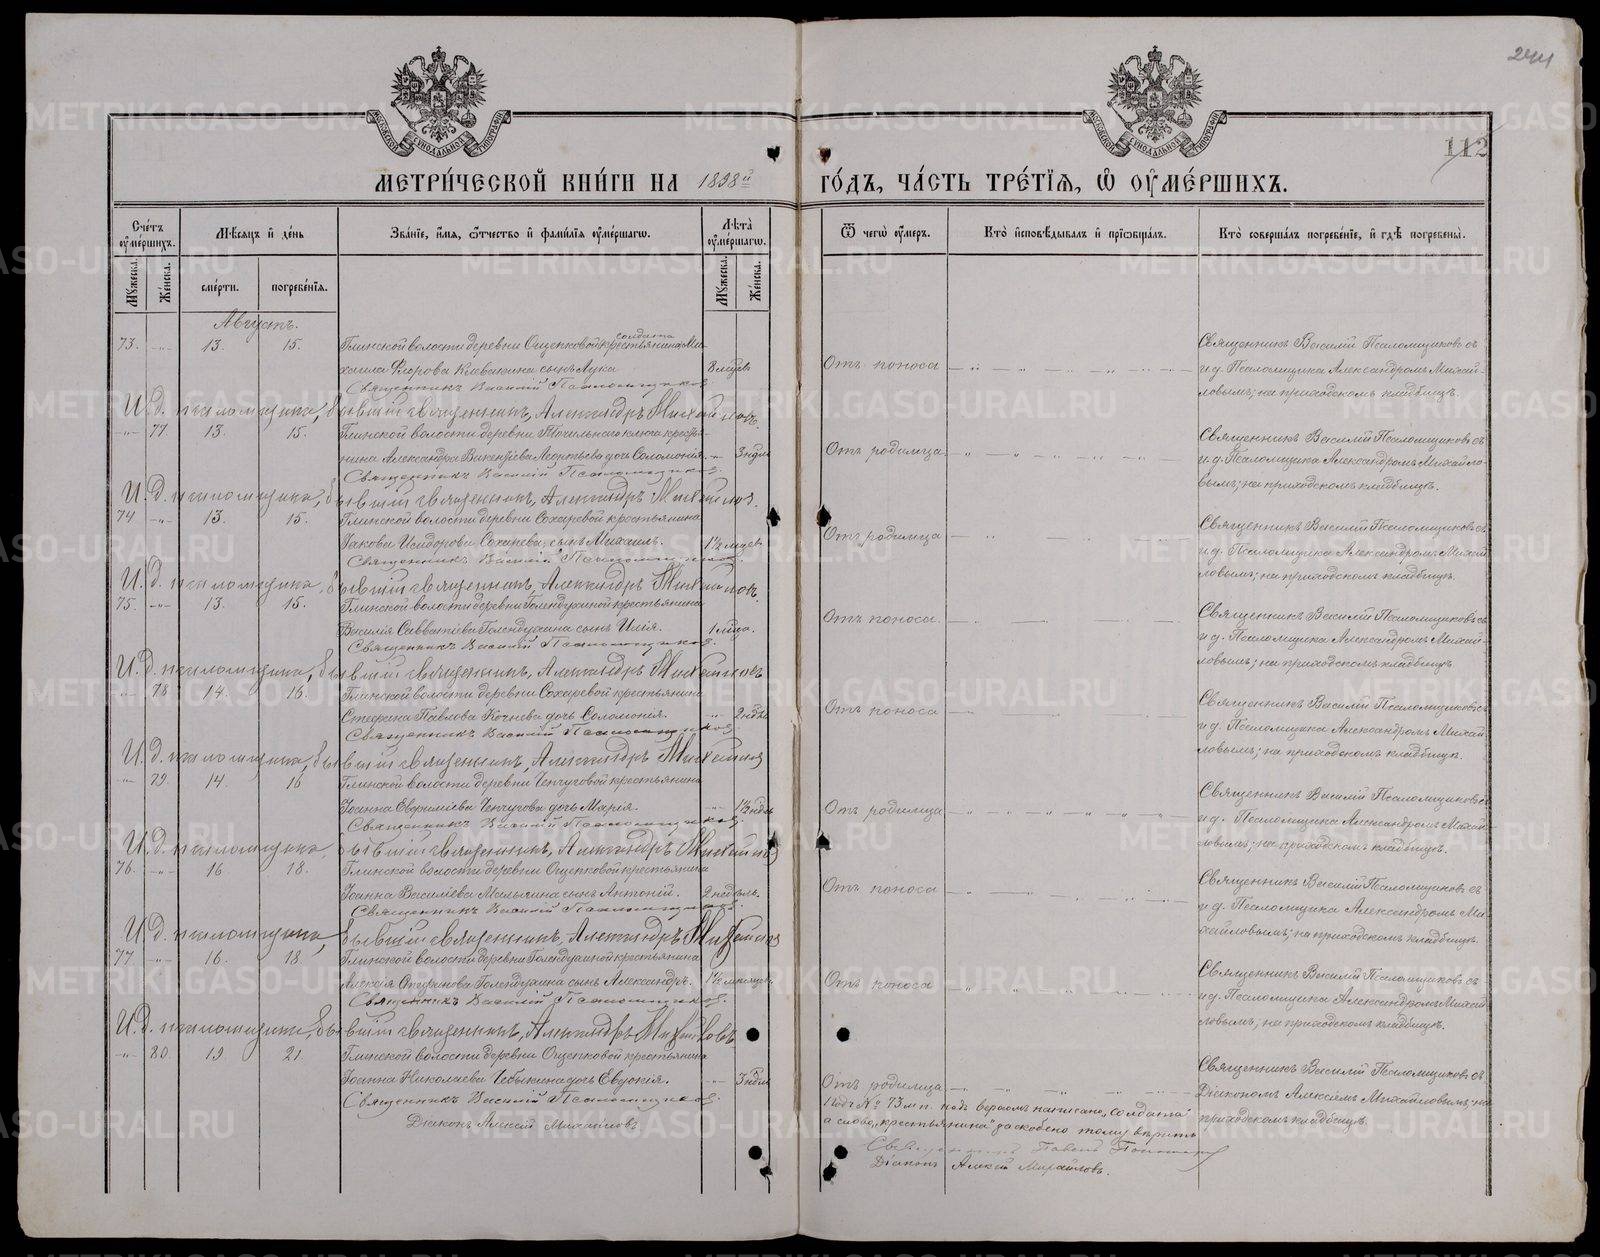 244
112
МОСКОВСКОЙ СУНОДАЛЬНОЙ ТИПОГРАФІИ
МОСКОВСКОЙ СУНОДАЛЬНОЙ ТИПОГРАФІИ
МЕТРИ́ЧЕСКОЙ КНИ́ГИ НА 1898й ГО́ДЪ, ЧА́СТЬ ТРЕ́ТІЯ, Ѡ ОУ҆МЕ́РШИХЪ.
Сче́тъ оу҆ме́ршихъ.
Мѣ́сяцъ и҆ де́нь
Зва́нїе, и҆́мя, ѻ҆́тчество и҆ фами́лїя оу҆ме́ршагѡ.
Лѣ́та оу҆ме́ршагѡ.
Ѿ чегѡ̀ оу҆́меръ.
Кто̀ и҆сповѣ́дывалъ и҆ прїѡбща́лъ.
Кто̀ соверша́лъ погребе́нїе, и҆ гдѣ̀ погребены̀.
Му́жеска.
Же́нска.
сме́рти.
погребе́нїя.
Му́жеска.
Же́нска.
Августъ.
73. -„- 13. 15. Глинской волости деревни Ощепковой крестьянина солдата Ми-
хаила Егорова сынъ Лука 8 мцевъ Отъ поноса
Священникъ Василій Псаломщиковъ съ
и.д. Псаломщика Александромъ Михай-
ловымъ; на приходскомъ кладбищѣ.
Священникъ Василій Псаломщиковъ
И. д. псаломщика, бывшій священникъ, Александръ Михайловъ.
-„- 77. 13. 15. Глинской волости деревни Точильнаго ключа кресть-
нина Александра Викентіева Леонтьева дочь Соломонія. -„- 3 нди Отъ родимца
Священникъ Василій Псаломщиковъ съ
и.д. Псаломщика Александромъ Михайло-
вымъ; на приходскомъ кладбищѣ.
Священникъ Василій Псаломщиковъ.
И. д. псаломщика, бывшій священникъ, Александръ Михайловъ.
74 -„- 13. 15. Глинской волости деревни Сохаревой крестьянина
Іакова Исидорова Сохарева сынъ Михаилъ. 1½ мцевъ Отъ родимца
Священникъ Василій Псаломщиковъ съ
и.д. Псаломщика Александромъ Михай-
ловымъ; на приходскомъ кладбищѣ.
Священникъ Василій Псаломщиковъ.
И. д. псаломщика, бывшій священникъ, Александръ Михайловъ.
75. -„- 13. 15. Глинской волости деревни Голендухиной крестьянина
Василія Савватіева Голендухина сынъ Илія. 1 Отъ поноса.
Священникъ Василій Псаломщиковъ съ
и д. Псаломщика Александромъ Михай-
ловымъ; на приходскомъ кладбищѣ
Священникъ Василій Псаломщиковъ.
И. д. псаломщика, бывшій священникъ, Александръ Михайловъ
-„- 78 14. 16. Глинской волости деревни Сохаревой крестьянина
Стефана Павлова Кочнева дочь Соломонія. -„- 2 ндѣ Отъ поноса
Священникъ Василій Псаломщиковъ съ
и д. Псаломщика Александромъ Михай
ловымъ; на приходскомъ кладбищѣ.
Священникъ Василій Псаломщиковъ
И. д. псаломщика, бывшій священникъ, Александръ Михайловъ
-„- 79. 14. 16 Глинской волости деревни Ченчуговой крестьянина
Іоанна Евфиміева Ченчугова дочь Марія. -„- 1½ ндѣл Отъ родимца
Священникъ Василій Псаломщиковъ съ
и д. Псаломщика Александромъ Михай-
ловымъ; на приходскомъ кладбищѣ.
Священникъ Василій Псаломщиковъ.
И. д. псаломщика, бывшій священникъ, Александръ Михайловъ
76. -„- 16 18. Глинской волости деревни Ощепковой крестьянина
Іоанна Василіева сынъ Антоній. 2 недѣль. Отъ поноса
Священникъ Василій Псаломщиковъ съ
и д. Псаломщика Александромъ Ми-
хайловымъ; на приходскомъ кладбищѣ.
Священникъ Василій Псаломщиковъ.
И. д. псаломщика, бывшій священникъ, Александръ Михайловъ
77 -„- 16. 18. Глинской волости деревни Голендухиной крестьянина
Алексія Голендухина сынъ Александръ. 1½ мѣсяцевъ Отъ поноса
Священникъ Василій Псаломщиковъ съ
и д. Псаломщика Александромъ Михай
ловымъ, на приходскомъ кладбищѣ.
Священникъ Василій Псаломщиковъ.
И. д. псаломщика, бывшій священникъ, Александръ Михайловъ
-„- 80. 19. 21. Глинской волости деревни Ощепковой крестьянина
Іоанна Николаева Чебыкина дочь Евдокія. -„- 3 нди Отъ родимца
Священникъ Василій Псаломщиковъ съ
Діакономъ Алексіемъ Михайловымъ, на
приходскомъ кладбищѣ.
Священникъ Василій Псаломщиковъ.
Діаконъ Алексій Михайловъ
Подъ № 73 м п. надъ верхомъ написано, солдата
а слово „крестьянина" заскоблено тому вѣрить
Священникъ Павелъ
Діаконъ Алексій Михайловъ.
METRIKI.GASO-URAL.RU